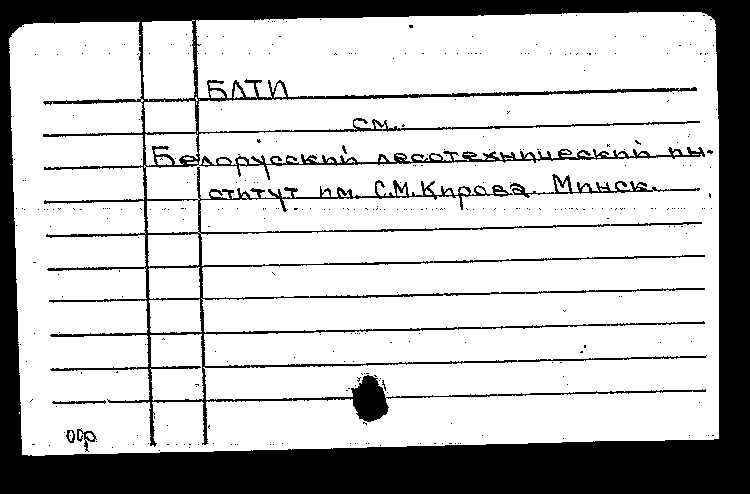 БЛТИ
см.:
Белорусский лесотехнический ин-
ститут им. С.М.Кирова. Минск.